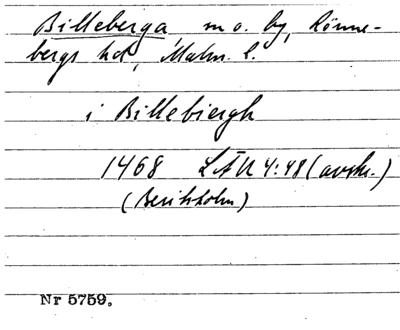 Billeberga, sn o. by, Rönne-
bergs hd, Malm. l.
i Billebiergh
1468 LÄU 4:48 (avskr.)
(Beckholm)
Nr 5759.